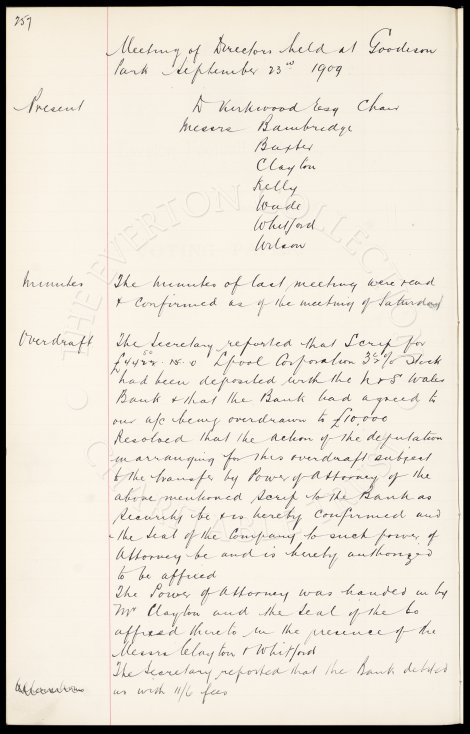 257
Meeting of Directors held at Goodison
Park September 23rd 1909
Present
D Kirkwood Esq Chair
Messrs Bainbridge
Baxter
Clayton
Kelly
Wade
Whitford
Wilson
Minutes
The minutes of last meeting were read
& confirmed as of the meeting of Saturday
Overdraft
The Secretary reported that Scrip for
£ 15. 0 Lpool Corporation 3 % Stock
had been deposited with the N & S Wales
Bank & that the Bank had agreed to
our a/c being overdrawn to £10,000
Resolved that the action of the deputation
in arranging for this overdraft subject
to the transfer by Power of Attorney of the
above mentioned Scrip to the Bank as
security be & is hereby confirmed and
the Seal of the Company to such power of
Attorney be and is hereby authorized
to be affixed
The Power of Attorney was handed in by
Mr Clayton and the Seal of the Co
affixed thereto in the presence of the
Messrs Clayton & Whitford
The Secretary reported that the Bank debited
us with 11/6 fees
THE EVERTON COLLECTION